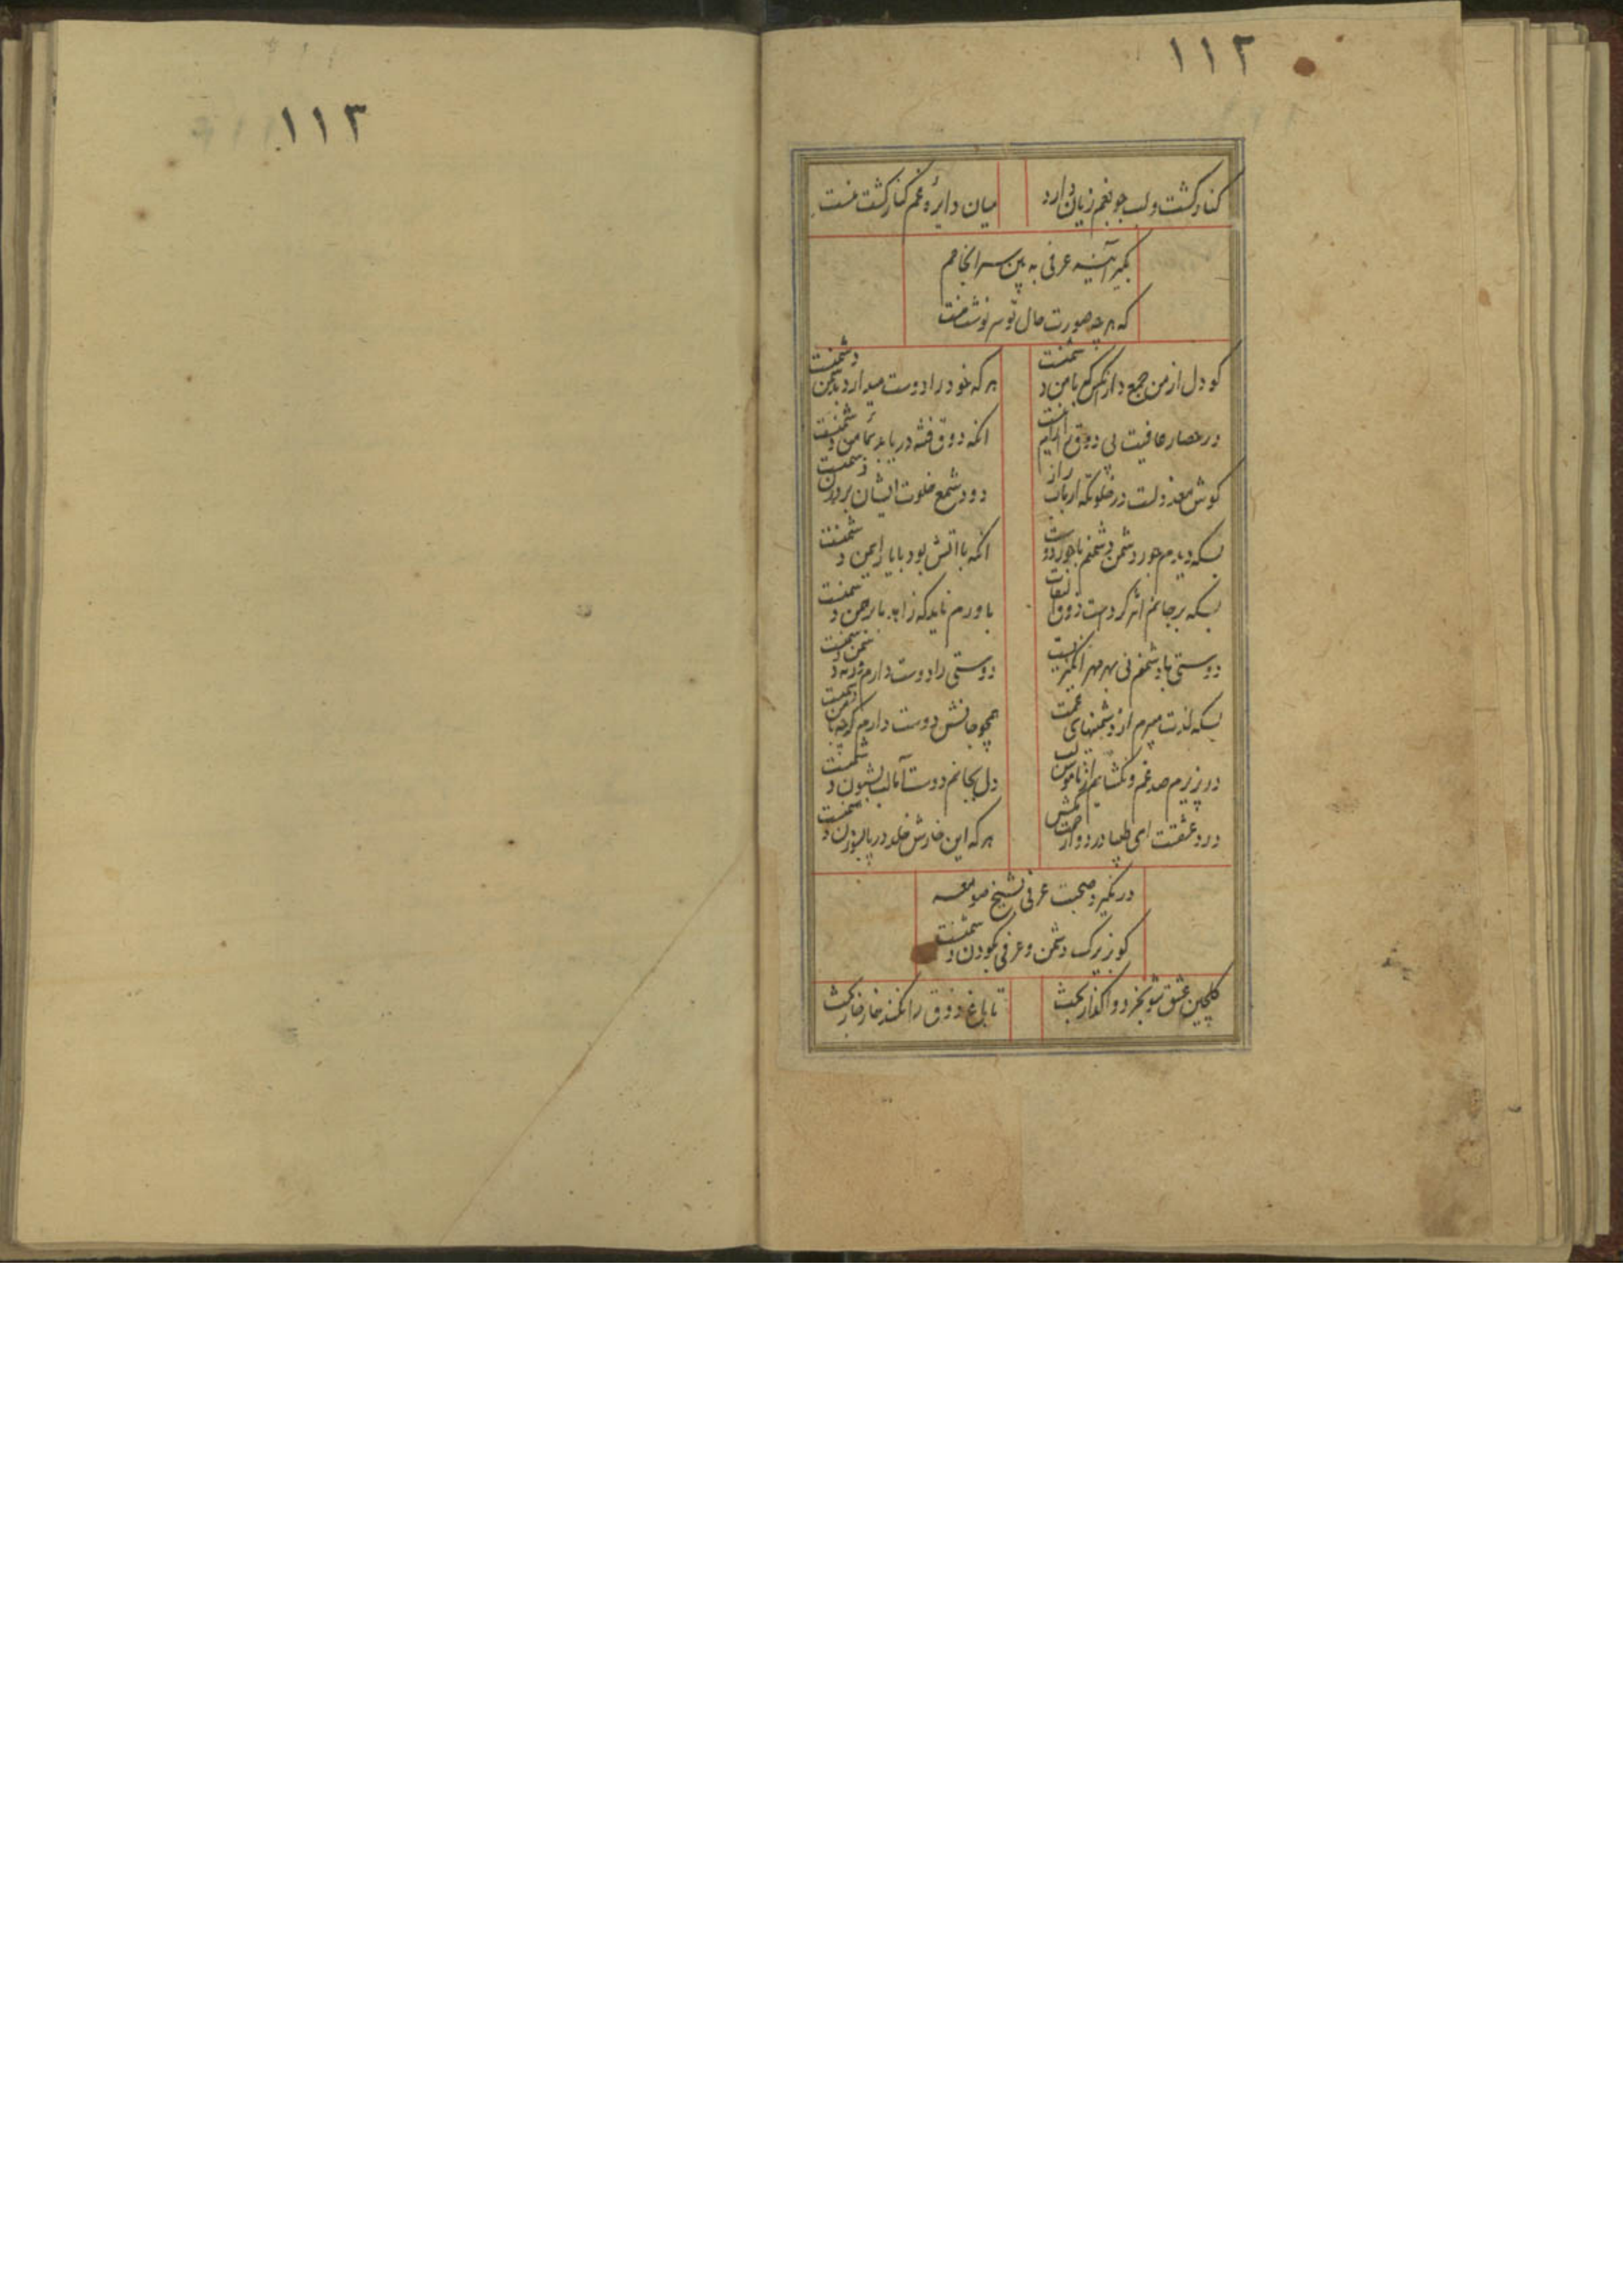 ۱۱۲
کنار کشت و لب جو بغم زیان دارد
میان دایره غم کنار کشت منست
بگیر آینه عرفی به بین سرانجامم
که هر چه صورت حال تو سرنوشت منست
کو دل از من جمع دار آنکس که با من دشمنست
هر که خود را دوست میدارد دشمنست
در حصار عافیت بی ذوق
انکه ذوق فتنه دریابد من دشمنست
کوش معذولست در خلوتکه ارباب راز
دود شمع خلوت ایشان دشمنست
بسکه دیدم جور دشمن دشمنم با جور دوست
انکه با اتش بود با یار ایمن دشمنست
بسکه بر جانم اثر کردست ذوق التفات
باورم ناید که زاهد با برهمن دشمنست
دوستی با دشمنم نی بهر مهر انکیزیست
دوستی را دوست دارم دشمنست
بسکه لذت میبرم از دشمنیهای غمت
همچو جانش دوست دارم کرچه با من دشمنست
در پزیرم صد غم و نکشایم از ناموس لب
دل بجانم دوست اما لب بشیون دشمنست
درد عشقست ای طبیب
هر که این خارش خلد در پا بسوزن دشمنست
در نکیرد صحبت عرفی بشیخ صومعه
کو زیرک دشمن و عرفی بکودن دشمنست
کلچین عشق شو بخرد واکذار بحث
تا باغ ذوق را نکند خار خار بحث
۱۱۳